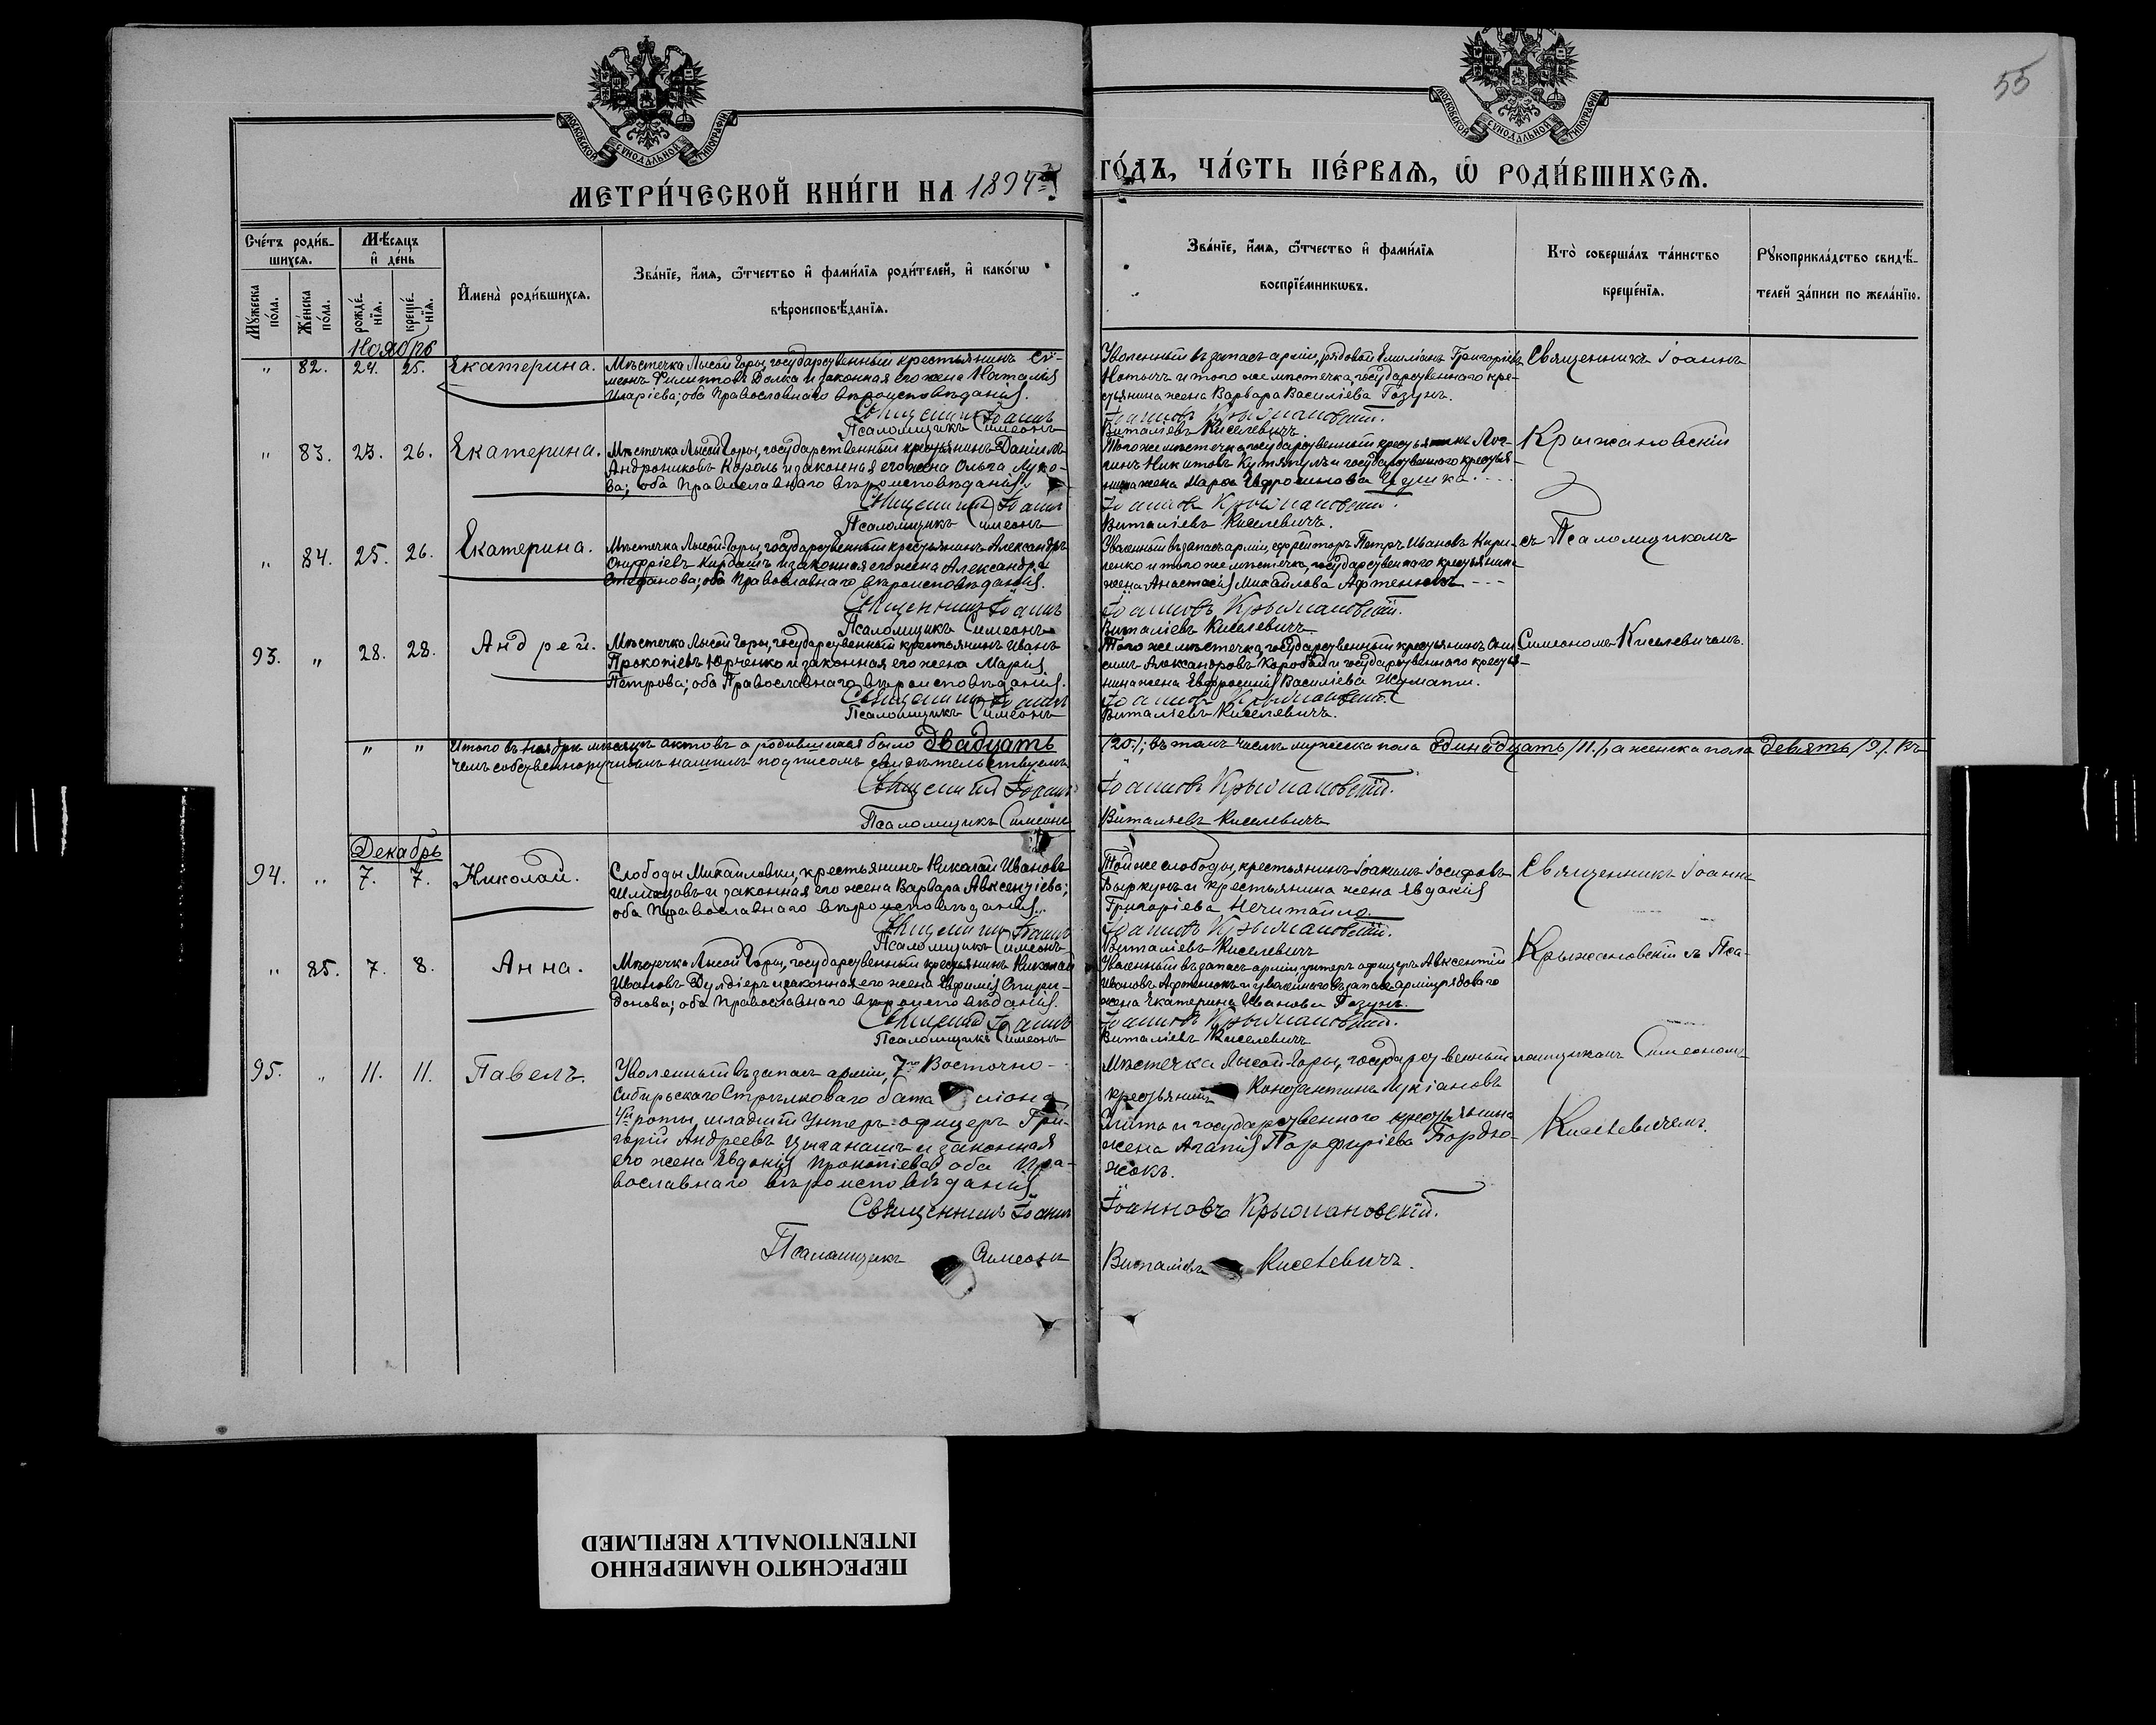 55
МОСКОВСКОЙ СѴНОДАЛЬНОЙ ТИПОГРАФІИ
МОСКОВСКОЙ СѴНОДАЛЬНОЙ ТИПОГРАФІИ
МЕТРИ́ЧЕСКОЙ КНИ́ГИ НА 1894й
ГО́ДЪ, ЧА́СТЬ ПЕ́РВАЯ, Ѡ РОДИ́ВШИХСЯ.
Сче́тъ роди́в-
шихся.
Мѣ́сяцъ
и де́нь
Му́жеска по́ла.
Же́нска по́ла.
рожде́-
нїя.
креще́-
нїя.
И́мена̀ роди́вшихся.
Зва́нїе, и́мя, ѻ҆́тчество и фами́лїя роди́телей, и како́гѡ
вѣроисповѣ́данїя.
Зва́нїе, и́мя, ѻ҆́тчество и фами́лїя
воспрїе́мникѡвъ.
Кто̀ соверша́лъ та́инство
креще́нїя.
Рꙋкоприкла́дство свидѣ́-
телей за́писи по жела́нїю.
Ноябрь
" 82. 24. 25. Екатерина.
Мѣстечка Лысой Горы, государственный крестьянинъ Си-
меонъ Филипповъ Долка и законная его жена Наталія
Иларіева; оба Православнаго вѣроисповѣданія.
Священникъ Іоаннъ
Псаломщикъ Симеонъ
Уволенный въ запасъ арміи, рядовой Емиліанъ Григоріевъ
и того же мѣстечка, государственнаго кре-
стьянина жена Варвара Василіева Гозунъ.
Іоанновъ Крыжановскій.
Виталіевъ Киселевичъ.
Священникъ Іоаннъ
" 83. 23. 26. Екатерина.
Мѣстечка Лысой Горы, государственный крестьянинъ Даніилъ
Андрониковъ Король и законная его жена Ольга Луко-
ва; оба Православнаго вѣроисповѣданія.
Священникъ Іоаннъ
Псаломщикъ Симеонъ
Того же мѣстечка, государственный крестьянинъ Лог-
гинъ Никитовъ и государственнаго крестья-
нина жена Марѳа Евфроминова
Іоанновъ Крыжановскій.
Виталіевъ Киселевичъ.
Крыжановскій
" 84. 25. 26. Екатерина.
Мѣстечка Лысой-Горы, государственный крестьянинъ Александръ
Онуфріевъ Кирбашъ и законная его жена Александра
Стефанова; оба Православнаго вѣроисповѣданія.
Священникъ Іоаннъ
Псаломщикъ Симеонъ
Уволенный въ запасъ арміи, ефрейторъ Петръ Ивановъ Кири-
ленко и того же мѣстечка, государственнаго крестьянина
жена Анастасія Михайлова Афтенюкъ
Іоанновъ Крыжановскій.
Виталіевъ Киселевичъ
съ Псаломщикомъ
93. " 28. 28. Андрей.
Мѣстечка Лысой Горы, государственный крестьянинъ Иванъ
Прокопіевъ Юрченко и законная его жена Марія
Петрова; оба Православнаго вѣроисповѣданія.
Священникъ Іоаннъ
Псаломщикъ Симеонъ
Того же мѣстечка, государственный крестьянинъ Они-
симъ Александровъ Коробай и государственнаго крестья-
нина жена Евфросинія Василіева
Іоанновъ Крыжановскій.
Виталіевъ Киселевичъ.
Симеономъ Киселевичемъ.
" " Итого въ Ноябрѣ мѣсяцѣ актовъ о родившихся было Двадцать
/20./; въ томъ числѣ мужеска пола Одинадцать /11./, а женска пола Девять /9./. Въ
чемъ собственноручнымъ нашимъ подписомъ свидѣтельствуемъ
Священникъ Іоаннъ
Іоанновъ Крыжановскій.
Псаломщикъ Симеонъ
Виталіевъ Киселевичъ
Декабрь
94. " 7. 7. Николай.
Слободы Михайловки, крестьянинъ Николай Ивановъ
и законная его жена Варвара Авксентіева;
оба Православнаго вѣроисповѣданія.
Священникъ Іоаннъ
Псаломщикъ Симеонъ
Той же слободы, крестьянинъ Іоакимъ Іосифовъ
Выркунъ и крестьянина жена Евдокія
Григоріева Нечитайло.
Іоанновъ Крыжановскій.
Виталіевъ Киселевичъ
Священникъ Іоаннъ
" 85. 7. 8. Анна.
Мѣстечка Лысой Горы, государственный крестьянинъ Николай
Ивановъ Дулдіеръ и законная его жена Евфимія Спири-
донова; оба Православнаго вѣроисповѣданія.
Священникъ Іоаннъ
Псаломщикъ Симеонъ
Уволенный въ запасъ арміи унтеръ офицеръ Авксентій
Ивановъ Афтенюкъ и уволеннаго въ запасъ арміи рядоваго
жена Екатерина Иванова Гозунъ.
Іоанновъ Крыжановскій.
Виталіевъ Киселевичъ
Крыжановскій съ Пса-
95. " 11. 11. Павелъ.
Уволенный въ запасъ арміи, 7го Восточно-
Сибирьскаго Стрѣлковаго бата ліона,
4й роты, младшій Унтеръ-офицеръ Гри-
горій Андреевъ Цыганашъ и законная
его жена Евдокія Прокопіева; оба Пра-
вославнаго вѣроисповѣданія
Священникъ Іоаннъ
Псаломщикъ Симеонъ
Мѣстечка Лысой-Горы, государственный
крестьянинъ Константинъ Лукіановъ
и государственнаго крестьянина
жена Агапія Порфиріева Бордю-
жокъ.
Іоанновъ Крыжановскій.
Виталіевъ Киселевичъ.
ломщикомъ Симеономъ
Киселевичемъ.
ПЕРЕСНЯТО НАМЕРЕННО
INTENTIONALLY REFILMED